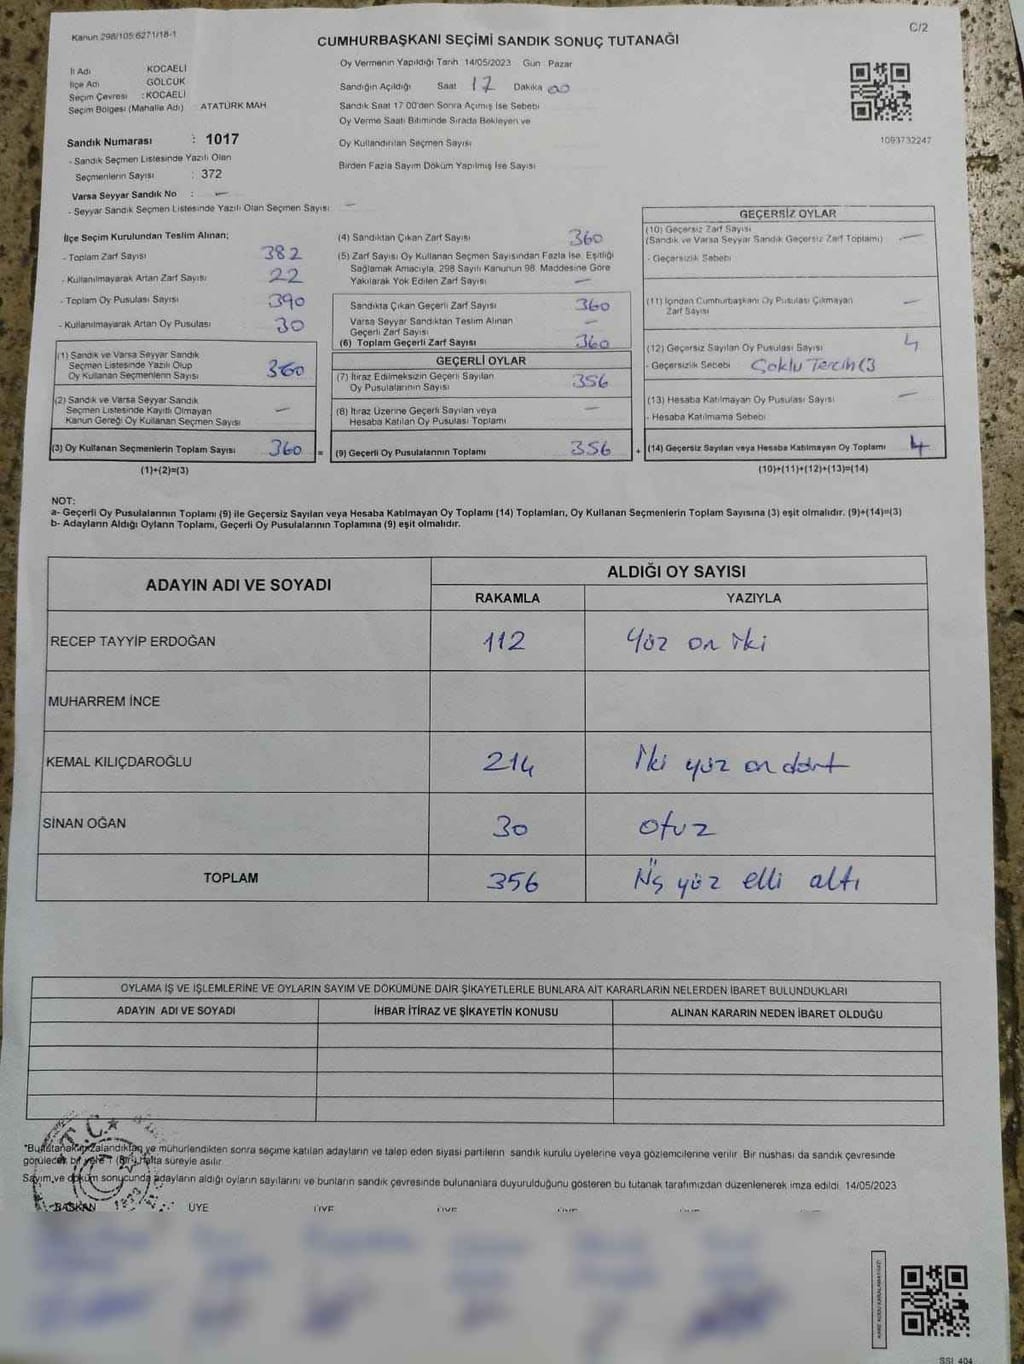 Kanun 298/105 6271/18-1
C/2
CUMHURBAŞKANI SEÇİMİ SANDIK SONUÇ TUTANAĞI
İl Adı KOCAELİ
İlçe Adı GÖLCÜK
Seçim Çevresi : KOCAELİ
Seçim Bölgesi (Mahalle Adı) ATATÜRK MAH
Sandık Numarası : 1017
- Sandık Seçmen Listesinde Yazılı Olan
Seçmenlerin Sayısı : 372
Varsa Seyyar Sandık No : —
- Seyyar Sandık Seçmen Listesinde Yazılı Olan Seçmen Sayısı —
Oy Vermenin Yapıldığı Tarih 14/05/2023 Gün Pazar
Sandığın Açıldığı Saat 17 Dakika 00
Sandık Saat 17 00'den Sonra Açımış İse Sebebi
Oy Verme Saati Bitiminde Sırada Bekleyen ve
Oy Kullandırılan Seçmen Sayısı
Birden Fazla Sayım Döküm Yapılmış İse Sayısı
1093732247
İlçe Seçim Kurulundan Teslim Alınan;
- Toplam Zarf Sayısı 382
- Kullanılmayarak Artan Zarf Sayısı 22
- Toplam Oy Pusulası Sayısı 390
- Kullanılmayarak Artan Oy Pusulası 30
(1) Sandık ve Varsa Seyyar Sandık
Seçmen Listesinde Yazılı Olup
Oy Kullanan Seçmenlerin Sayısı 360
(2) Sandık ve Varsa Seyyar Sandık
Seçmen Listesinde Kayıtlı Olmayan
Kanun Gereği Oy Kullanan Seçmen Sayısı —
(3) Oy Kullanan Seçmenlerin Toplam Sayısı 360 =
(1)+(2)=(3)
(4) Sandıktan Çıkan Zarf Sayısı 360
(5) Zarf Sayısı Oy Kullanan Seçmen Sayısından Fazla İse, Eşitliği
Sağlamak Amacıyla, 298 Sayılı Kanunun 98. Maddesine Göre
Yakılarak Yok Edilen Zarf Sayısı —
Sandıkta Çıkan Geçerli Zarf Sayısı 360
Varsa Seyyar Sandıktan Teslim Alınan
Geçerli Zarf Sayısı —
(6) Toplam Geçerli Zarf Sayısı 360
GEÇERLİ OYLAR
(7) İtiraz Edilmeksizin Geçerli Sayılan
Oy Pusulalarının Sayısı 356
(8) İtiraz Üzerine Geçerli Sayılan veya
Hesaba Katılan Oy Pusulası Toplamı —
(9) Geçerli Oy Pusulalarının Toplamı 356 +
GEÇERSİZ OYLAR
(10) Geçersiz Zarf Sayısı
(Sandık ve Varsa Seyyar Sandık Geçersiz Zarf Toplamı) —
- Geçersizlik Sebebi
(11) İçinden Cumhurbaşkanı Oy Pusulası Çıkmayan
Zarf Sayısı —
(12) Geçersiz Sayılan Oy Pusulası Sayısı 4
- Geçersizlik Sebebi Çoklu Tercih (3
(13) Hesaba Katılmayan Oy Pusulası Sayısı —
- Hesaba Katılmama Sebebi
(14) Geçersiz Sayılan veya Hesaba Katılmayan Oy Toplamı 4
(10)+(11)+(12)+(13)=(14)
NOT:
a- Geçerli Oy Pusulalarının Toplamı (9) ile Geçersiz Sayılan veya Hesaba Katılmayan Oy Toplamı (14) Toplamları, Oy Kullanan Seçmenlerin Toplam Sayısına (3) eşit olmalıdır. (9)+(14)=(3)
b- Adayların Aldığı Oyların Toplamı, Geçerli Oy Pusulalarının Toplamına (9) eşit olmalıdır.
ADAYIN ADI VE SOYADI ALDIĞI OY SAYISI
RAKAMLA YAZIYLA
RECEP TAYYİP ERDOĞAN 112 Yüz on iki
MUHARREM İNCE
KEMAL KILIÇDAROĞLU 214 İki yüz on dört
SİNAN OĞAN 30 Otuz
TOPLAM 356 Üç yüz elli altı
OYLAMA İŞ VE İŞLEMLERİNE VE OYLARIN SAYIM VE DÖKÜMÜNE DAİR ŞİKAYETLERLE BUNLARA AİT KARARLARIN NELERDEN İBARET BULUNDUKLARI
ADAYIN ADI VE SOYADI İHBAR İTİRAZ VE ŞİKAYETİN KONUSU ALINAN KARARIN NEDEN İBARET OLDUĞU
ve mühürlendikten sonra seçime katılan adayların ve talep eden siyasi partilerin sandık kurulu üyelerine veya gözlemcilerine verilir Bir nüshası da sandık çevresinde
görülecek bir yere 1 (Bir) Hafta süreyle asılır
Sayım ve döküm sonucunda adayların aldığı oyların sayılarını ve bunların sandık çevresinde bulunanlara duyurulduğunu gösteren bu tutanak tarafımızdan düzenlenerek imza edildi 14/05/2023
T.C.
BAŞKAN ÜYE ÜYE ÜYE ÜYE
SSI 404